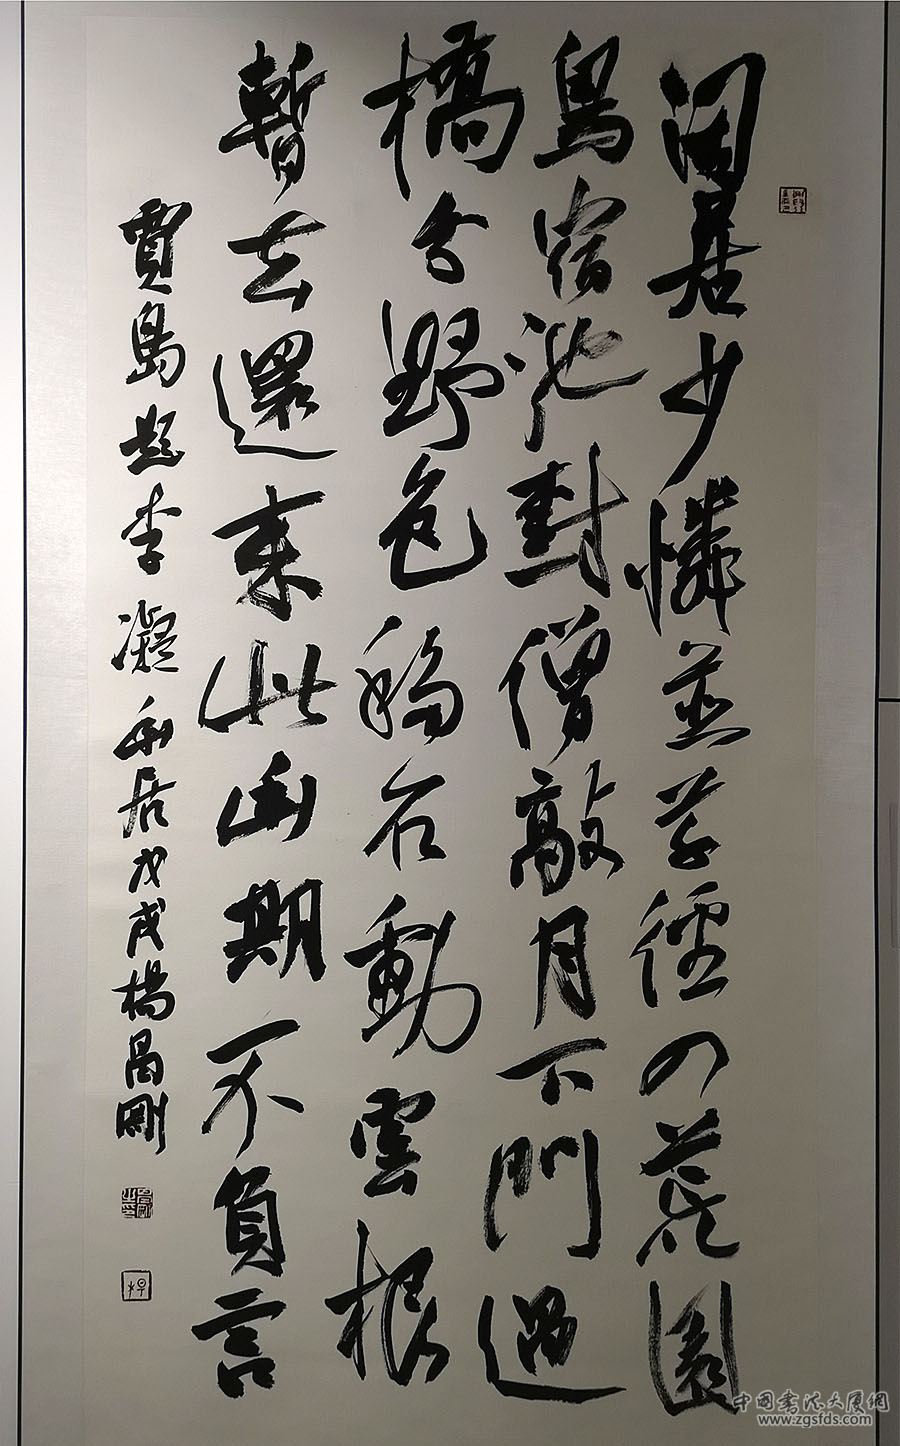 闲居少憐並草徑入荒園
鳥宿池對僧敲月下門過
橋分野色移石動雲根
暫去還來此幽期不負言
賈島題李凝幽居戊戌楊昌剛
中国书法大厦网
www.zgsfds.com